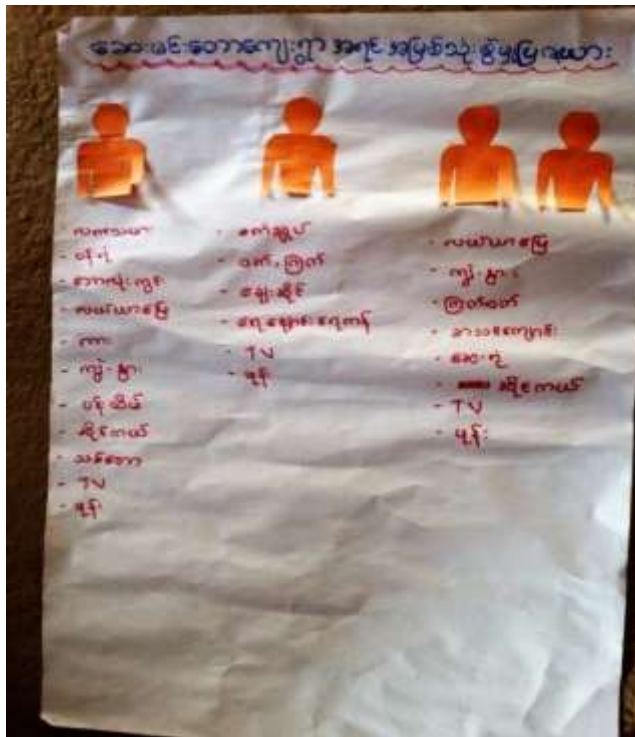 ဆေးဖင်းတောကျေးရွာ အရင်းအမြစ်သုံးစွဲမှုပြဇယား
- ဝန်ထုံ
- ဘောလုံးကွင်း
- လယ်ယာမြေ
- ကား
- ကျွဲ၊ နွား
- ဆိုင်ကယ်
- သစ်တော
- TV
- ဖုန်း
- စက်ချုပ်
- ဝက်၊ ကြက်
- ဈေးဆိုင်
- ရေချောင်း ရေကန်
- TV
- ဖုန်း
- လယ်ယာမြေ
- ကျွဲ၊ နွား
- ကြက်ဝက်
- စာသင်ကျောင်း
- ဆေးရုံ
- ဆိုင်ကယ်
- TV
- ဖုန်း